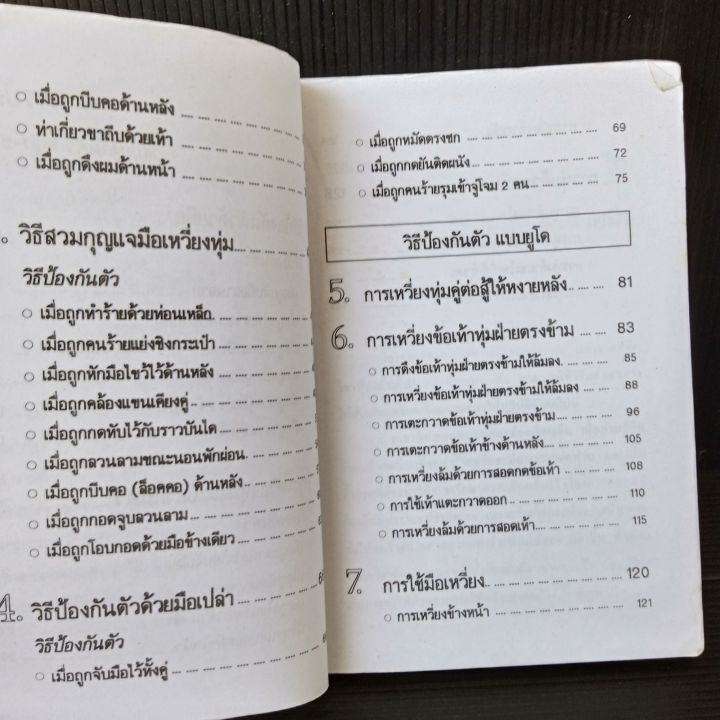 ○ เมื่อถูกบีบคอด้านหลัง
○ ท่าเกี่ยวขาถีบด้วยเท้า
○ เมื่อถูกดึงผมด้านหน้า
วิธีสวมกุญแจมือเหวี่ยงทุ่ม
วิธีป้องกันตัว
○ เมื่อถูกทำร้ายด้วยท่อนเหล็ก
○ เมื่อถูกคนร้ายแย่งชิงกระเป๋า
○ เมื่อถูกหักมือไขว้ไว้ด้านหลัง
○ เมื่อถูกคล้องแขนเคียงคู่
○ เมื่อถูกกดทับไว้กับราวบันได
○ เมื่อถูกลวนลามขณะนอนพักผ่อน
○ เมื่อถูกบีบคอ (ล็อคคอ) ด้านหลัง
○ เมื่อถูกกอดจูบลวนลาม
○ เมื่อถูกโอบกอดด้วยมือข้างเดียว
4. วิธีป้องกันตัวด้วยมือเปล่า
วิธีป้องกันตัว
○ เมื่อถูกจับมือไว้ทั้งคู่
○ เมื่อถูกหมัดตรงชก 69
○ เมื่อถูกกดยันติดผนัง 72
○ เมื่อถูกคนร้ายรุมเข้าจู่โจม 2 คน 75
วิธีป้องกันตัว แบบยูโด
5. การเหวี่ยงทุ่มคู่ต่อสู้ให้หงายหลัง 81
6. การเหวี่ยงข้อเท้าทุ่มฝ่ายตรงข้าม 83
○ การดึงข้อเท้าทุ่มฝ่ายตรงข้ามให้ล้มลง 85
○ การเหวี่ยงข้อเท้าทุ่มฝ่ายตรงข้ามให้ล้มลง 88
○ การเตะกวาดข้อเท้าทุ่มฝ่ายตรงข้าม 96
○ การเตะกวาดข้อเท้าข้างด้านหลัง 105
○ การเหวี่ยงล้มด้วยการสอดกดข้อเท้า 108
○ การใช้เท้าแตะกวาดออก 110
○ การเหวี่ยงล้มด้วยการสอดเท้า 115
7. การใช้มือเหวี่ยง 120
○ การเหวี่ยงข้างหน้า 121